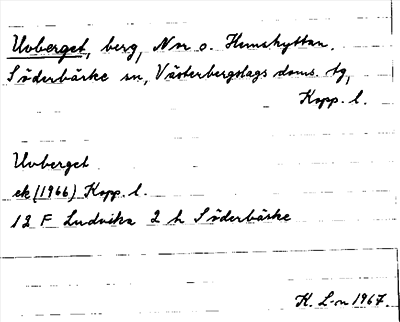 Uvberget, berg, N om o. Hemshyttan.
Söderbärke sn, Västerbergslags doms. tg,
Kopp. l.
Uvberget
ek (1966) Kopp. l.
12 F Ludvika 2 h Söderbärke
K. L-m 1967.